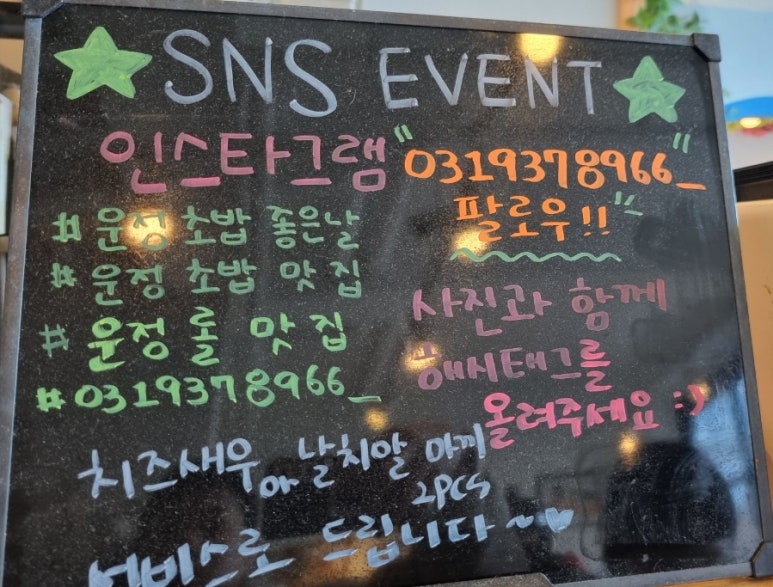 SNS EVENT
인스타그램 "0319378966_"
팔로우!!
#운정초밥 좋은날
#운정 초밥 맛집
#운정 롤 맛집
#0319378966_
사진과 함께
해시태그를
올려주세요 :)
치즈새우 or 날치알 마끼
2PCS
서비스로 드립니다~♥